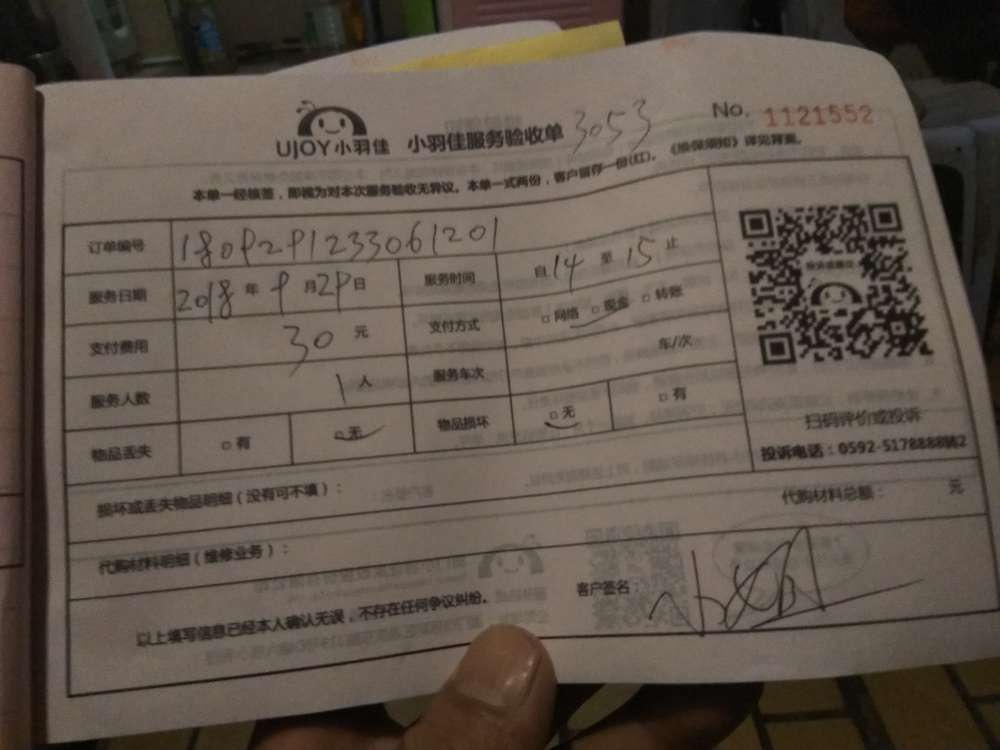 No. 1121552
UJOY小羽佳 小羽佳服务验收单 3053
本单一经核签，即视为对本次服务验收无异议。本单一式两份，客户留存一份(红)。《维保须知》详见背面。
订单编号 1809291233061201
服务日期 2018年9月29日 服务时间 自14至15止
支付费用 30元 支付方式 □网络 □现金 □转账
服务人数 1人 服务车次 车/次
物品丢失 □有 □无 物品损坏 □无 □有
扫码评价或投诉
投诉电话：0592-5178888转2
损坏或丢失物品明细（没有可不填）：
代购材料明细（维修业务）： 代购材料总额： 元
以上填写信息已经本人确认无误，不存在任何争议纠纷。 客户签名：